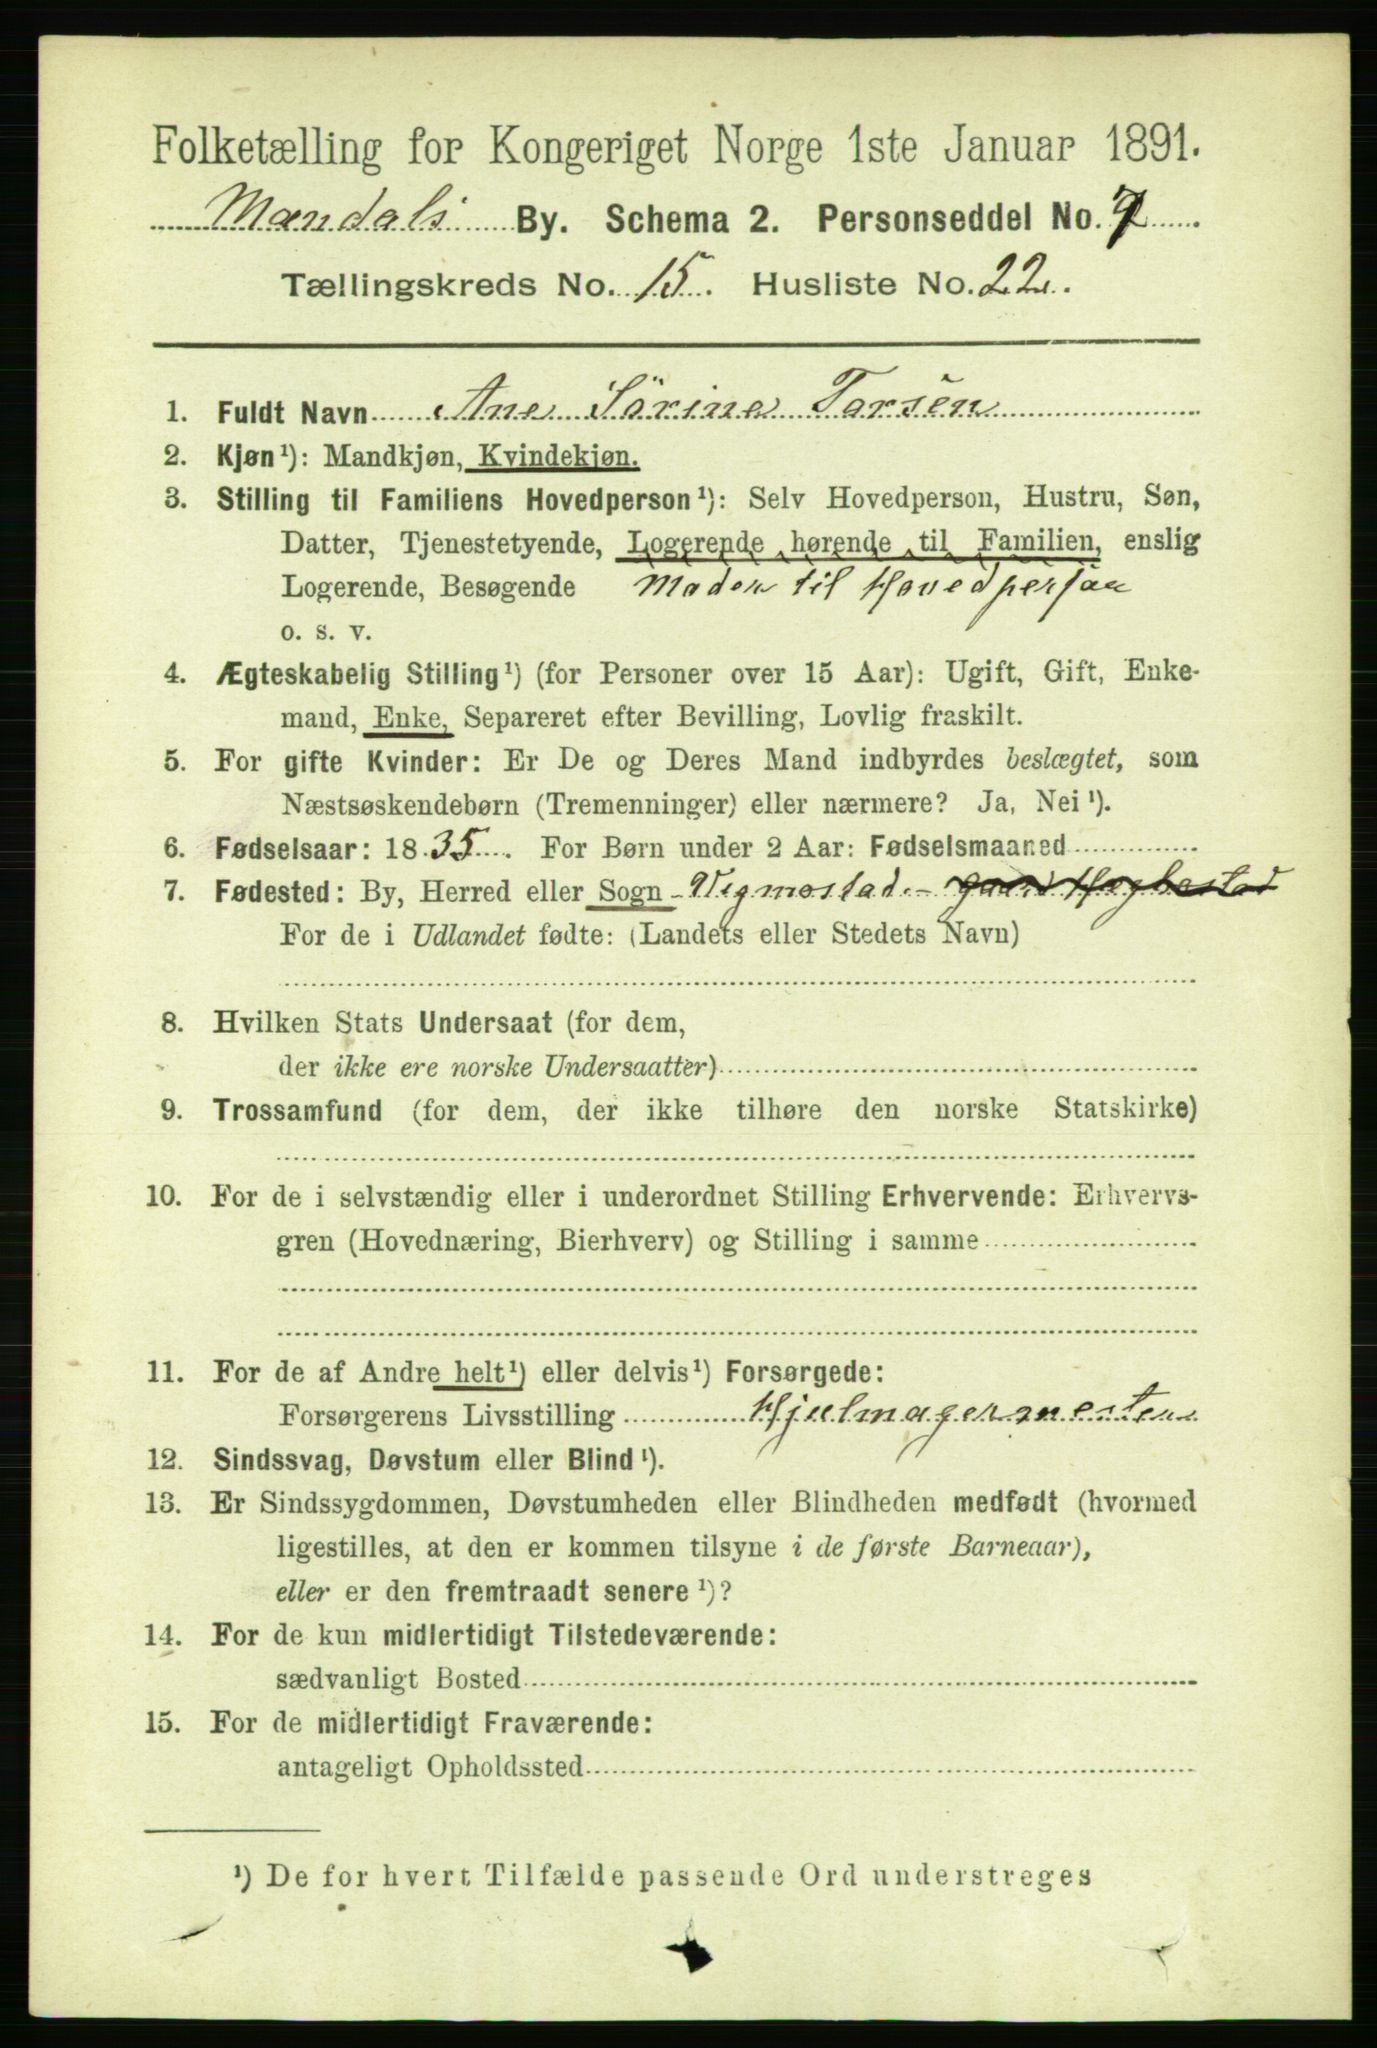 Folketælling for Kongeriget Norge 1ste Januar 1891.
Mandals By. Schema 2. Personseddel No. 7
Tællingskreds No. 15. Husliste No. 22.
1. Fuldt Navn Ane Sörine Torsen
2. Kjøn¹): Mandkjøn, Kvindekjøn.
3. Stilling til Familiens Hovedperson¹): Selv Hovedperson, Hustru, Søn,
Datter, Tjenestetyende, Logerende hørende til Familien, enslig
Logerende, Besøgende Moder til Hovedperson
o. s. v.
4. Ægteskabelig Stilling¹) (for Personer over 15 Aar): Ugift, Gift, Enke-
mand, Enke, Separeret efter Bevilling, Lovlig fraskilt.
5. For gifte Kvinder: Er De og Deres Mand indbyrdes beslægtet, som
Næstsøskendebørn (Tremenninger) eller nærmere? Ja, Nei¹).
6. Fødselsaar: 1835. For Børn under 2 Aar: Fødselsmaaned
7. Fødested: By, Herred eller Sogn Vigmostad. - gaard Høgbestad
For de i Udlandet fødte: (Landets eller Stedets Navn)
8. Hvilken Stats Undersaat (for dem,
der ikke ere norske Undersaatter)
9. Trossamfund (for dem, der ikke tilhøre den norske Statskirke)
10. For de i selvstændig eller i underordnet Stilling Erhvervende: Erhvervs-
gren (Hovednæring, Bierhverv) og Stilling i samme
11. For de af Andre helt¹) eller delvis¹) Forsørgede:
Forsørgerens Livsstilling Hjulmagermester
12. Sindssvag, Døvstum eller Blind¹).
13. Er Sindssygdommen, Døvstumheden eller Blindheden medfødt (hvormed
ligestilles, at den er kommen tilsyne i de første Barneaar),
eller er den fremtraadt senere¹)?
14. For de kun midlertidigt Tilstedeværende:
sædvanligt Bosted
15. For de midlertidigt Fraværende:
antageligt Opholdssted
¹) De for hvert Tilfælde passende Ord understreges